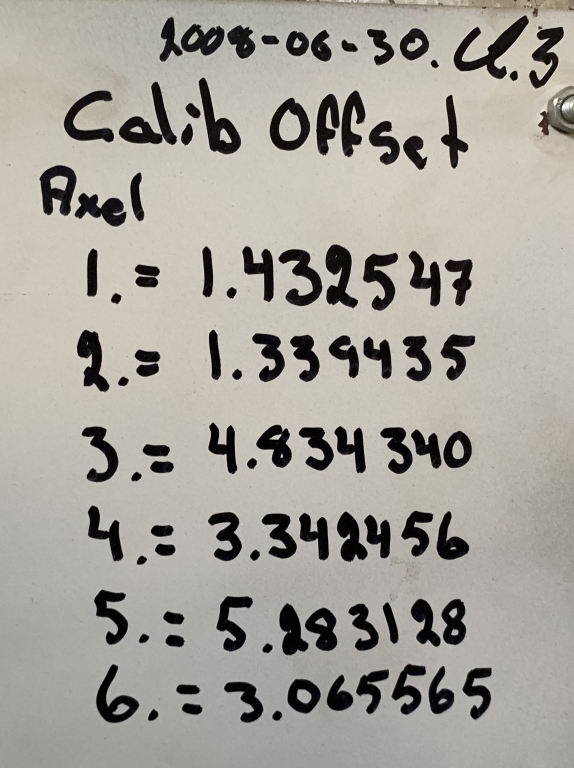 2008-06-30. Cl.3
Calib Offset
Axel
1.= 1.432547
2.= 1.339435
3.= 4.834340
4.= 3.342456
5.= 5.283128
6.= 3.065565